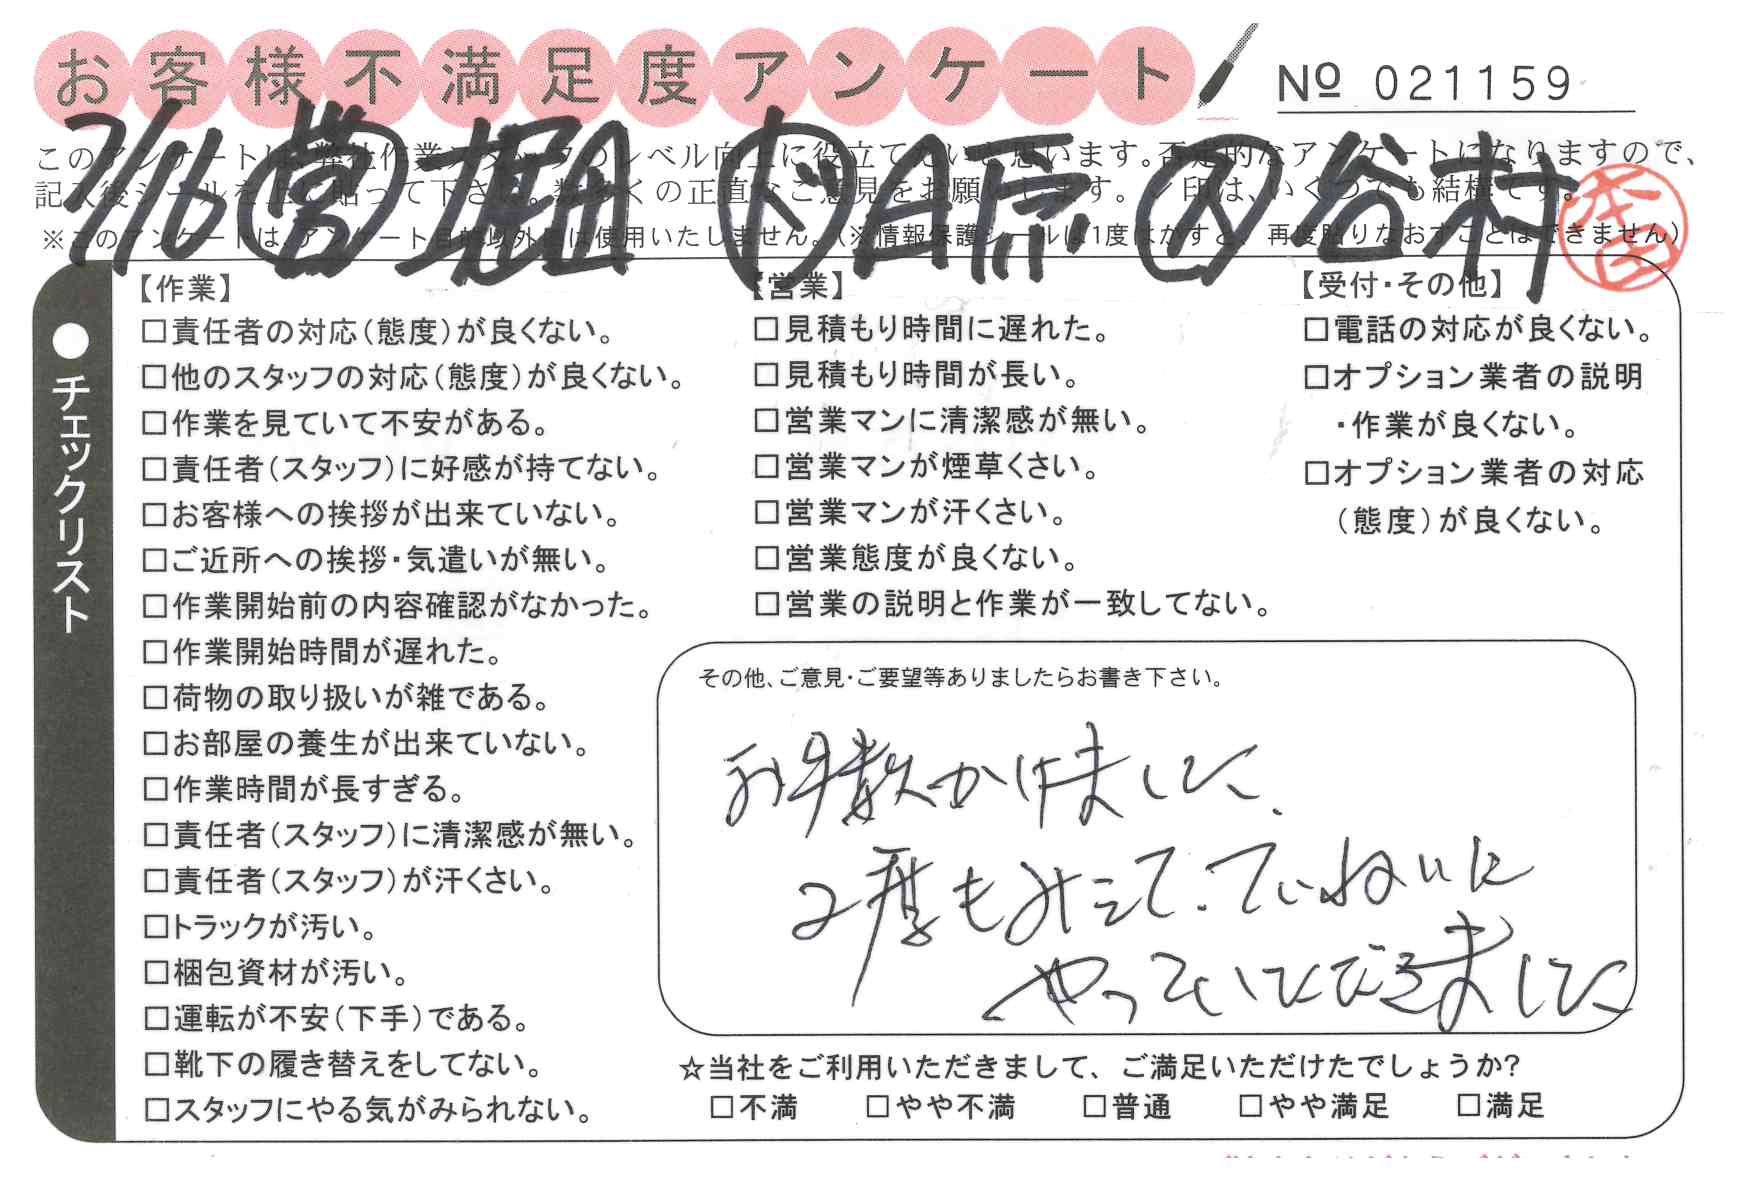 お客様不満足度アンケート
No 021159
7/16 営 堀田 ド 日原 ス 谷村
本田
このアンケートは、弊社作業スタッフのレベル向上に役立てたいと思います。否定的なアンケートになりますので、
記入後シールを上に貼って下さい。数多くの正直なご意見をお願いします。レ印は、いくつでも結構です。
※このアンケートは、アンケート目的以外には使用いたしません。(※情報保護シールは1度はがすと、再度貼りなおすことはできません)
●チェックリスト
【作業】
□責任者の対応(態度)が良くない。
□他のスタッフの対応(態度)が良くない。
□作業を見ていて不安がある。
□責任者(スタッフ)に好感が持てない。
□お客様への挨拶が出来ていない。
□ご近所への挨拶・気遣いが無い。
□作業開始前の内容確認がなかった。
□作業開始時間が遅れた。
□荷物の取り扱いが雑である。
□お部屋の養生が出来ていない。
□作業時間が長すぎる。
□責任者(スタッフ)に清潔感が無い。
□責任者(スタッフ)が汗くさい。
□トラックが汚い。
□梱包資材が汚い。
□運転が不安(下手)である。
□靴下の履き替えをしてない。
□スタッフにやる気がみられない。
【営業】
□見積もり時間に遅れた。
□見積もり時間が長い。
□営業マンに清潔感が無い。
□営業マンが煙草くさい。
□営業マンが汗くさい。
□営業態度が良くない。
□営業の説明と作業が一致してない。
【受付・その他】
□電話の対応が良くない。
□オプション業者の説明
・作業が良くない。
□オプション業者の対応
(態度)が良くない。
その他、ご意見・ご要望等ありましたらお書き下さい。
お手数かけました、
2度もみえて、ていねいに
やっていただきました
☆当社をご利用いただきまして、ご満足いただけたでしょうか?
□不満 □やや不満 □普通 □やや満足 □満足